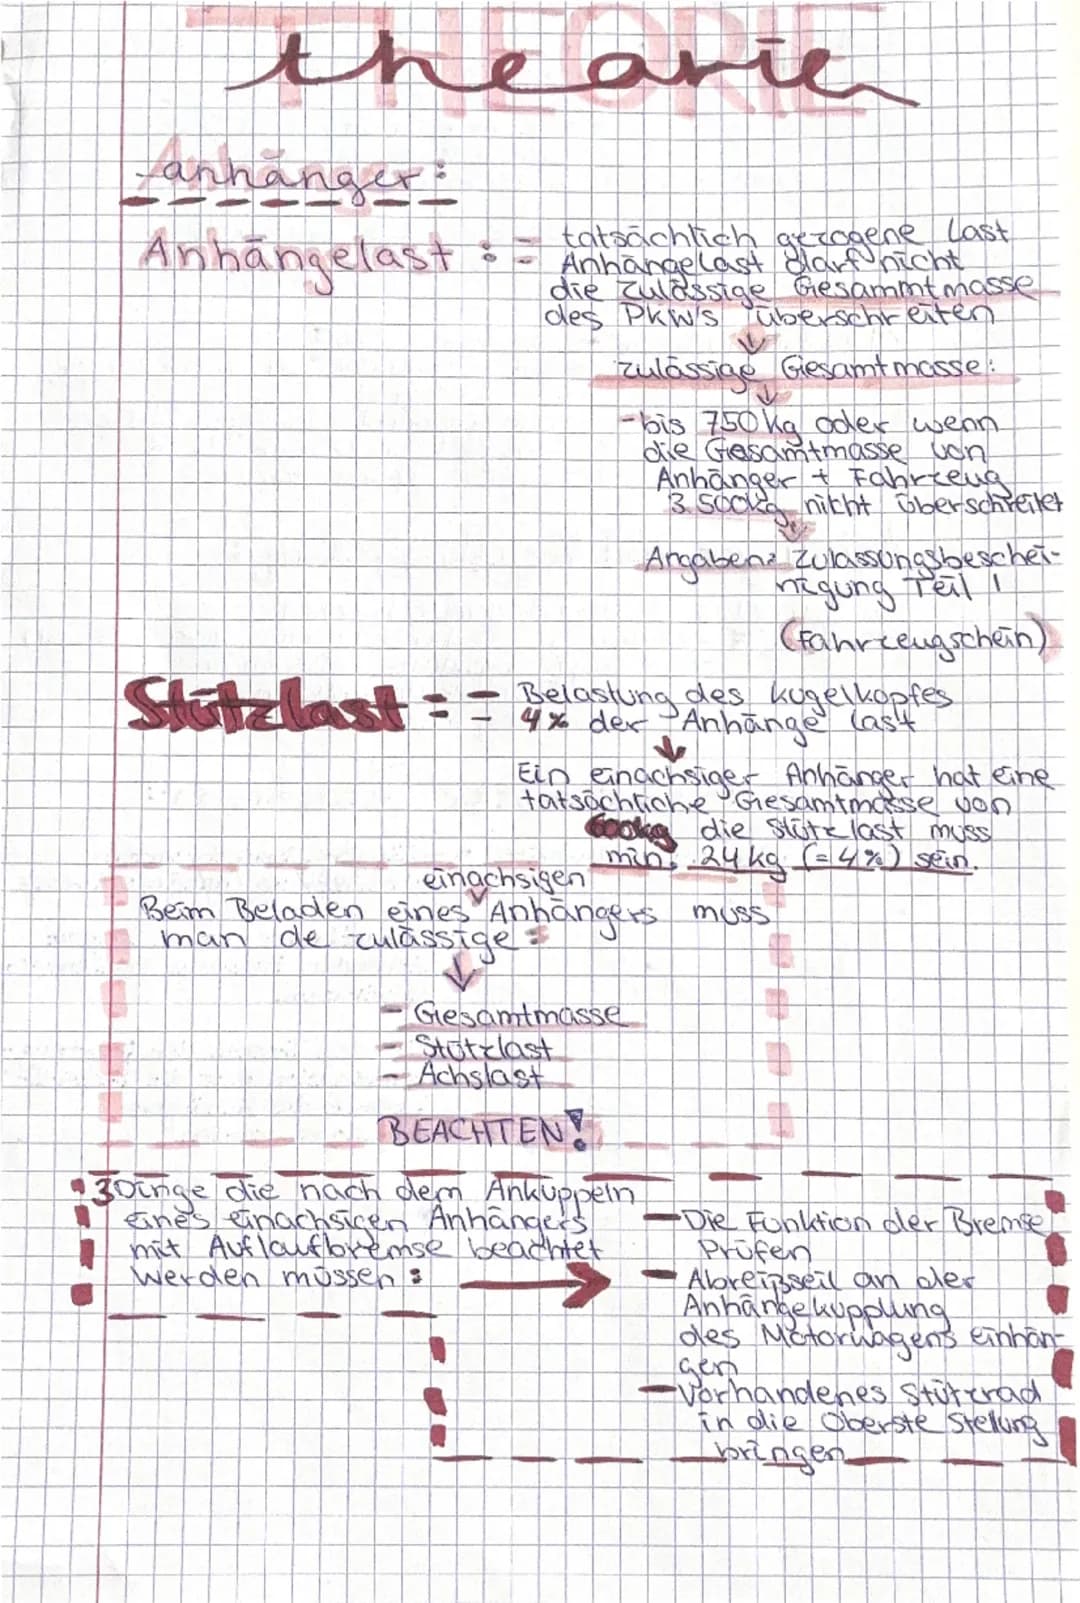 THEORIE
theorie
anhänger:
Anhängelast := tatsächlich gezogene Last
Anhängelast darf nicht
die zulässige Gesammtmasse
des PKW's überschreiten
zulässige Gesamtmasse:
-bis 750kg oder wenn
die Gesamtmasse von
Anhänger + Fahrzeug
3.500kg nicht überschreitet
Angaben: Zulassungsbeschei-
nigung Teil 1
(Fahrzeugschein)
Stützlast = - Belastung des Kugelkopfes
- 4% der Anhänge last
Ein einachsiger Anhänger hat eine
tatsächliche Gesamtmasse von
600kg die Stützlast muss
min. 24kg (=4%) sein.
einachsigen
Beim Beladen eines Anhängers muss
man de zulässige:
- Gesamtmasse
- Stützlast
- Achslast
BEACHTEN!
3 Dinge die nach dem Anküppeln
eines einachsigen Anhängers
mit Auflaufbremse beachtet
werden müssen:
- Die Funktion der Bremse
Prüfen
- Abreißseil an der
Anhängekupplung
des Motorwagens einhän-
gen
- Vorhandenes Stützrad
in die Oberste Stellung
bringen